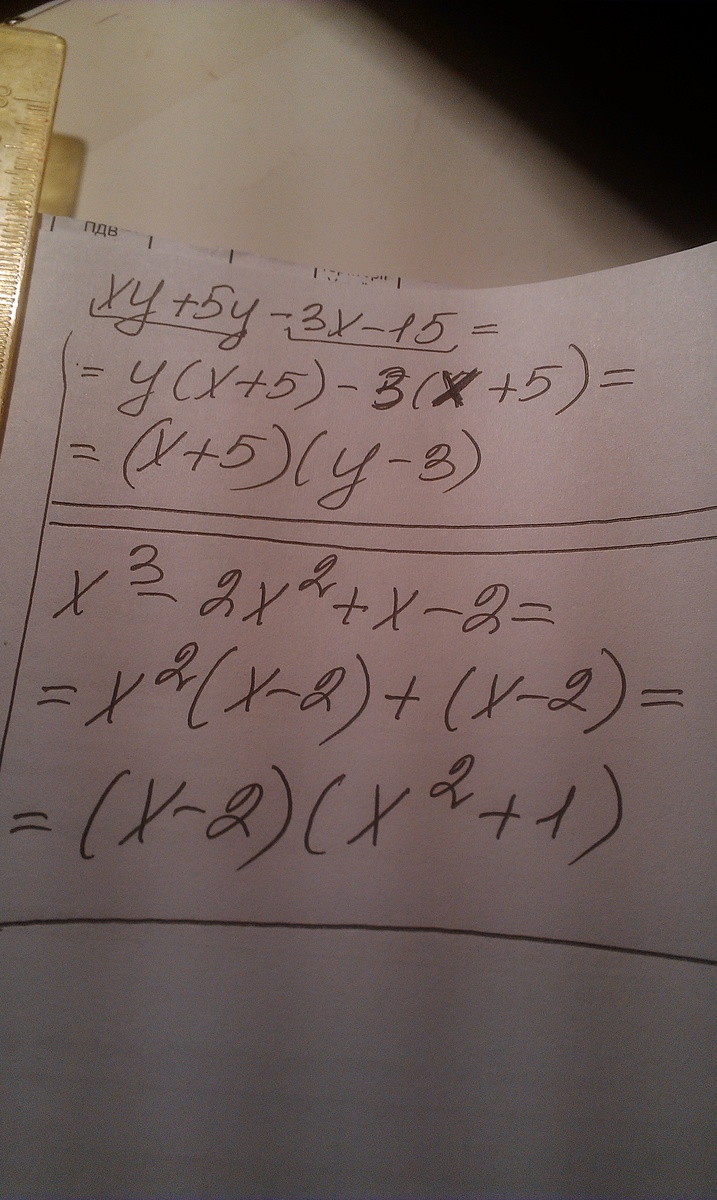 ПДВ
xy+5y-3x-15=
= y(x+5)-3(x+5)=
= (x+5)(y-3)
x³-2x²+x-2=
=x²(x-2)+(x-2)=
=(x-2)(x²+1)